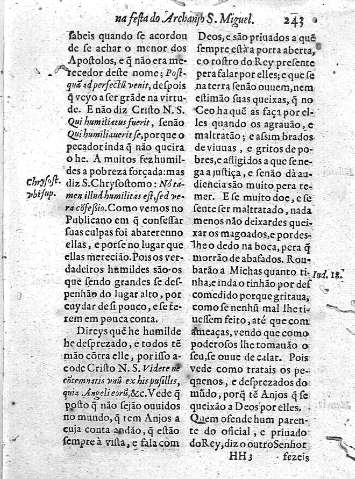 na festa do Archanjo S. Miguel. 243
sabeis quando se acordou
de se achar o menor dos
Apostolos, e q̃ não era me-
recedor deste nome; Post-
quã ad perfectũ venit, despois
q̃ veyo a ser grãde na virtu-
de. E não diz Cristo N. S.
Qui humiliatus fuerit, senão
Qui humiliaverit se, porque o
pecador inda q̃ não queira
o he. A muitos fez humil-
des a pobreza forçada: mas
diz S. Chrysostomo: Nõ ta-
men illud humilitas est, sed ve-
ra cõfessio. Como vemos no
Publicano em q̃ confessar
suas culpas foi abaterenno
ellas, e porse no lugar que
ellas merecião. Pois os ver-
dadeiros humildes são os
que sendo grandes se des-
penhão do lugar alto, por
cuydar de si pouco, e se te-
rem em pouca conta.
Direys què he humilde
he desprezado, e todos tẽ
mão cõtra elle, por isso a-
code Cristo N. S. Videte ne
cõtemnatis vnũ ex his pusillis,
quia Angeli eorũ, &c. Vede q̃
posto q̃ não sejão ouuidos
no mundo, q̃ tem Anjos a
cuja conta andão, q̃ estão
sempre à vista, e fala com
Chrysost.
vbi sup.
Deos, e são priuados a quẽ
sempre està a porta aberta,
e o rosto do Rey presente
pera falar por elles; e que se
na terra senão ouuem, nem
estimão suas queixas, q̃ no
Ceo ha quẽ as faça por elles
quando os agrauão, e
maltratão; e assim brados
de viuuas, e gritos de po-
bres, e afligidos a que se ne-
ga a justiça, e senão dà au-
diencia são muito pera te-
mer. E se muito doe, e se
sente ser maltratado, nada
menos não deixardes quei-
xar os magoados, e pordes-
lhe o dedo na boca, pera q̃
morrão de abafados. Rou-
barão a Michas quanto ti-
nha, e inda o tinhão por des
comedido porque gritaua,
como se nenhũ mal lhe ti-
uessem feito, atè que com
ameaças, vendo que como
poderosos lhe tomauão o
seu, se ouue de calar. Pois
vede como tratais os pe-
quenos, e desprezados do
mũdo, porq̃ tẽ Anjos q̃ se
queixão a Deos por elles.
Quem ofende hum paren-
te do oficial, e priuado
do Rey, diz o outro Senhor
Iud. 18.
HH3 fezeis